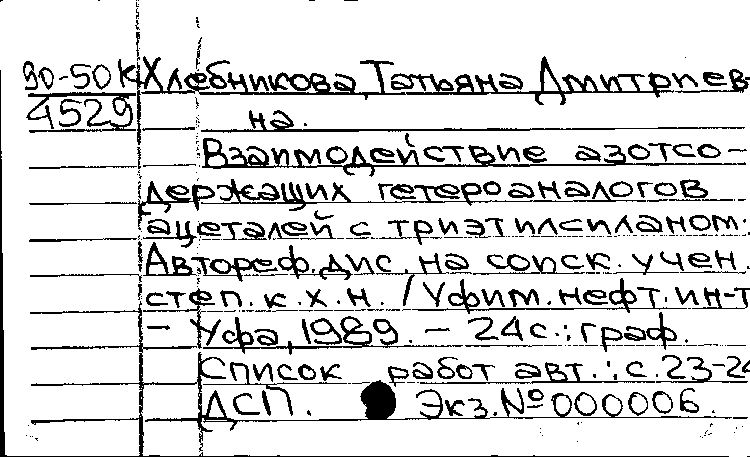 90-50К Хлебникова, Татьяна Дмитриев-
4529 на.
Взаимодействие азотсо-
держащих гетероаналогов
ацеталей с триэтилсиланом:
Автореф. дис. на соиск. учен.
степ. к.х.н. / Уфим. нефт. ин-т
- Уфа, 1989. - 24с.: граф.
Список работ авт.: с. 23-24
ДСП. Экз. № 000006.